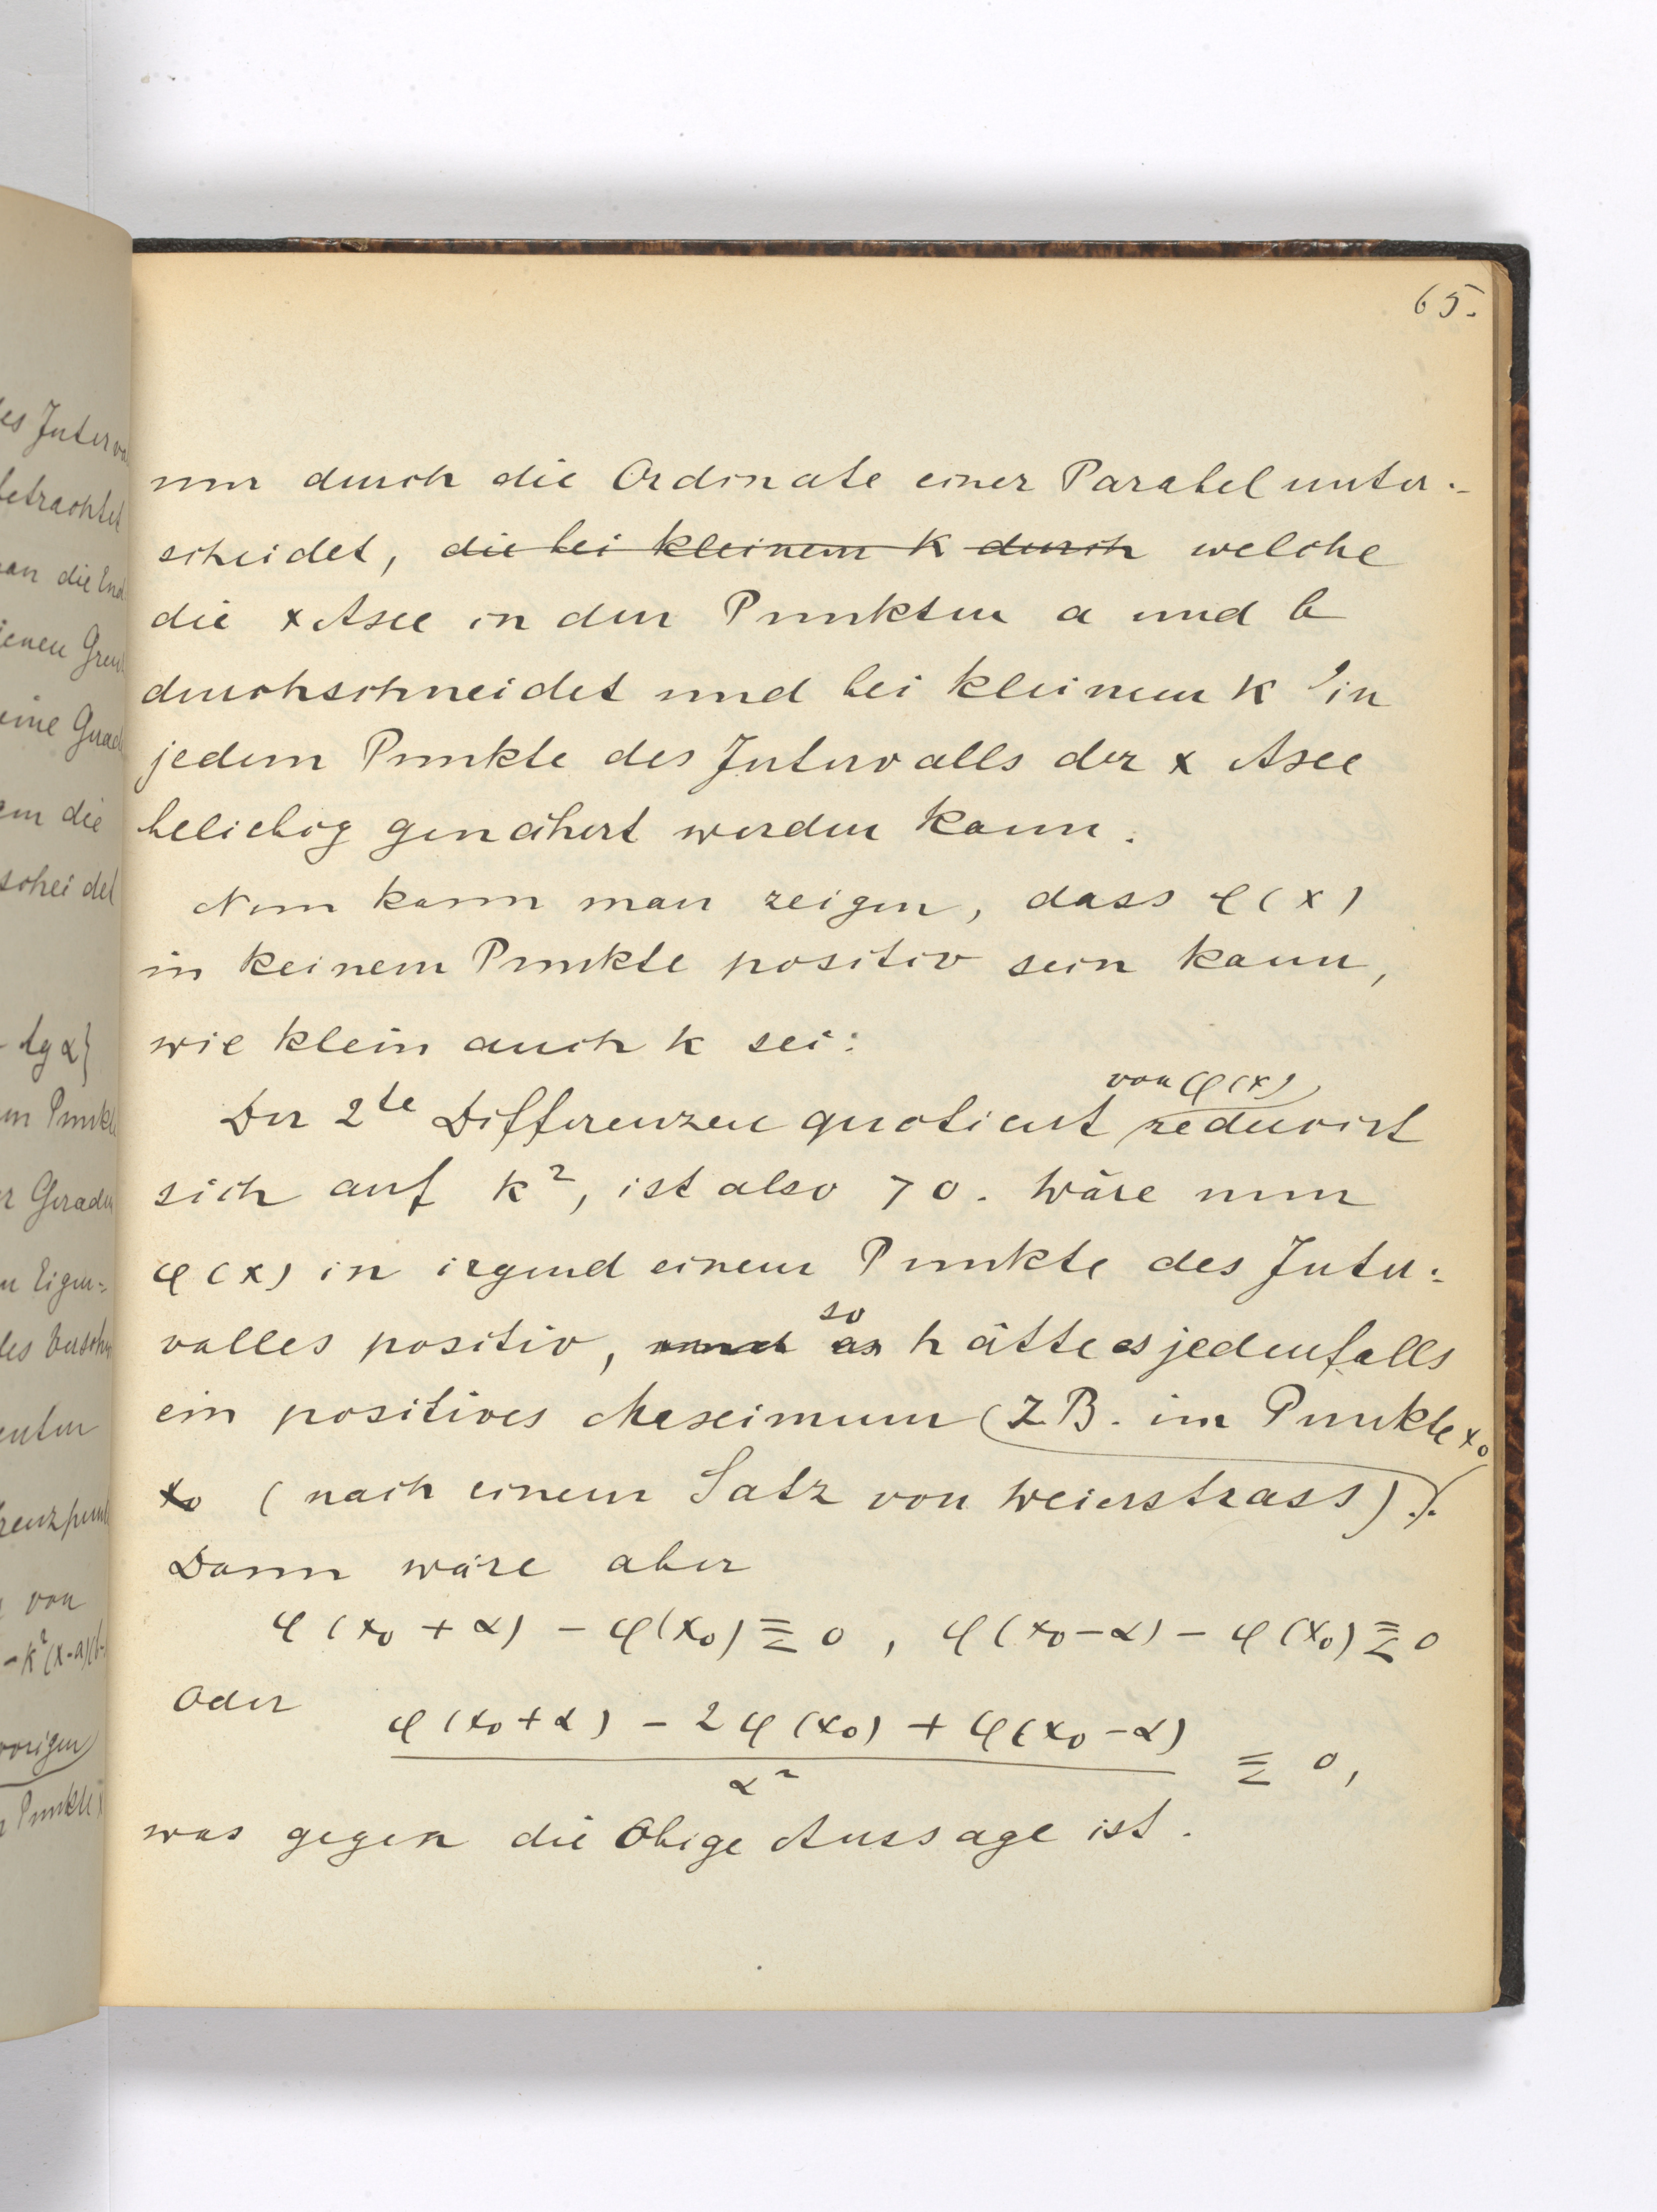 65.
nur durch die Ordinate einer Parabel unter-
scheidet, die bei kleinem k durch welche
die x Axe in den Punkten a und b
durchschneidet und bei kleinem k in
jedem Punkte des Intervalls der x Axe
beliebig genähert werden kann.
Nun kann man zeigen, dass φ(x)
in keinem Punkte positiv sein kann,
wie klein auch k sei:
von φ(x)
Der 2te Differenzenquotient reducirt
sich auf k², ist also > 0. Wäre nun
φ(x) in irgend einem Punkte des Inter-
so
valles positiv, und es hätte es jedenfalls
ein positives Maximum (z.B. im Punkte x₀
x₀ (nach einem Satz von Weierstrass)).
Dann wäre aber
φ(x₀ + α) − φ(x₀) ≦ 0, φ(x₀−α) − φ(x₀) ≦ 0
Oder
φ(x₀+α) − 2φ(x₀) + φ(x₀−α)
α² ≦ 0,
was gegen die Obige Aussage ist.
es Interva
betrachtet
an die End
jenen Gren
eine Gerad
em die
schei det
tg α}
Punkt
r Geraden
Eigen-
des Versch
renzpunkt
von
−k²(x−a)(b−
vorigen
Punkte x